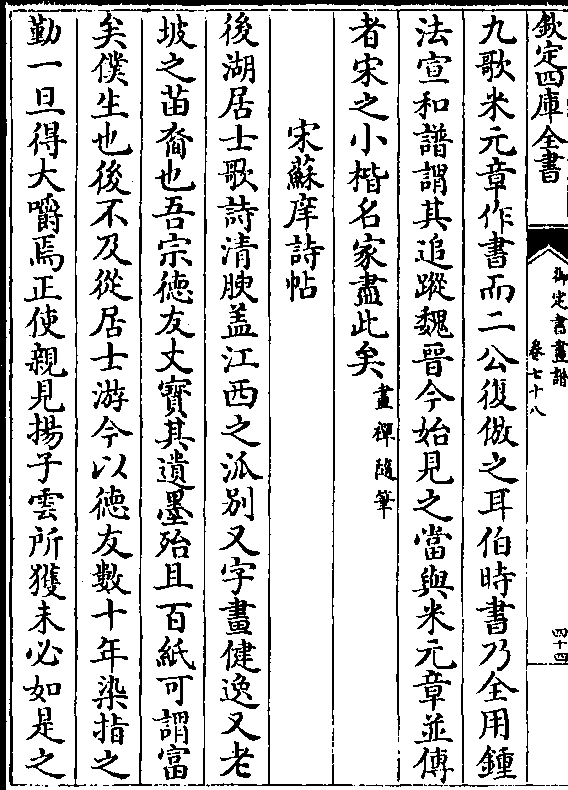 欽定四庫全書
御定書畫譜
卷七十八
四十四
九歌米元章作書而二公復倣之耳伯時書乃全用鍾
法宣和譜謂其追蹤魏晉今始見之當與米元章並傳
者宋之小楷名家盡此矣畫禪隨筆
宋蘇庠詩帖
後湖居士歌詩清腴盖江西之派别又字畫健逸又老
坡之苗裔也吾宗徳友丈寳其遺墨殆且百紙可謂富
矣僕生也後不及從居士游今以徳友數十年染指之
勤一旦得大嚼焉正使親見揚子雲所獲未必如是之